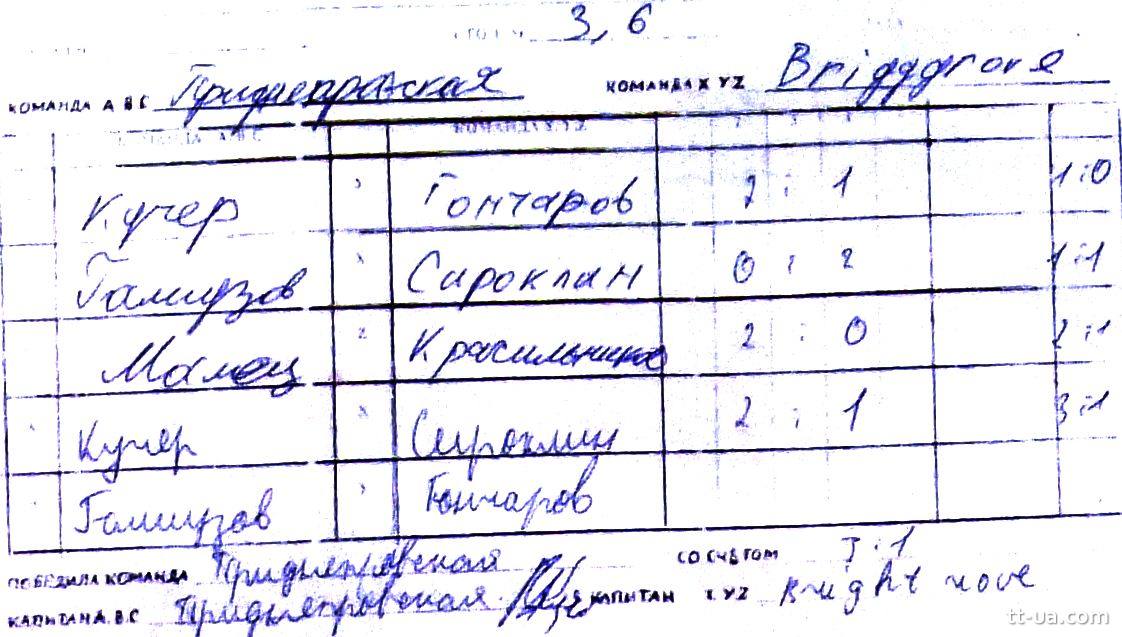 3, 6
КОМАНДА А В С Приднепровская КОМАНДА X YZ Brigggrove
КОМАНДА А В С КОМАНДА X Y Z
Кучер Гончаров 2 : 1 1:0
Гамиузов Сироклин 0 : 2 1:1
Малец Красильников 2 : 0 2:1
Кучер Сироклин 2 : 1 3:1
Гамиузов Гончаров
ПОБЕДИЛА КОМАНДА Приднепровская СО СЧЕТОМ 3:1
КАПИТАН А.В.С Приднепровская КАПИТАН X YZ Bright nove
tt-ua.com